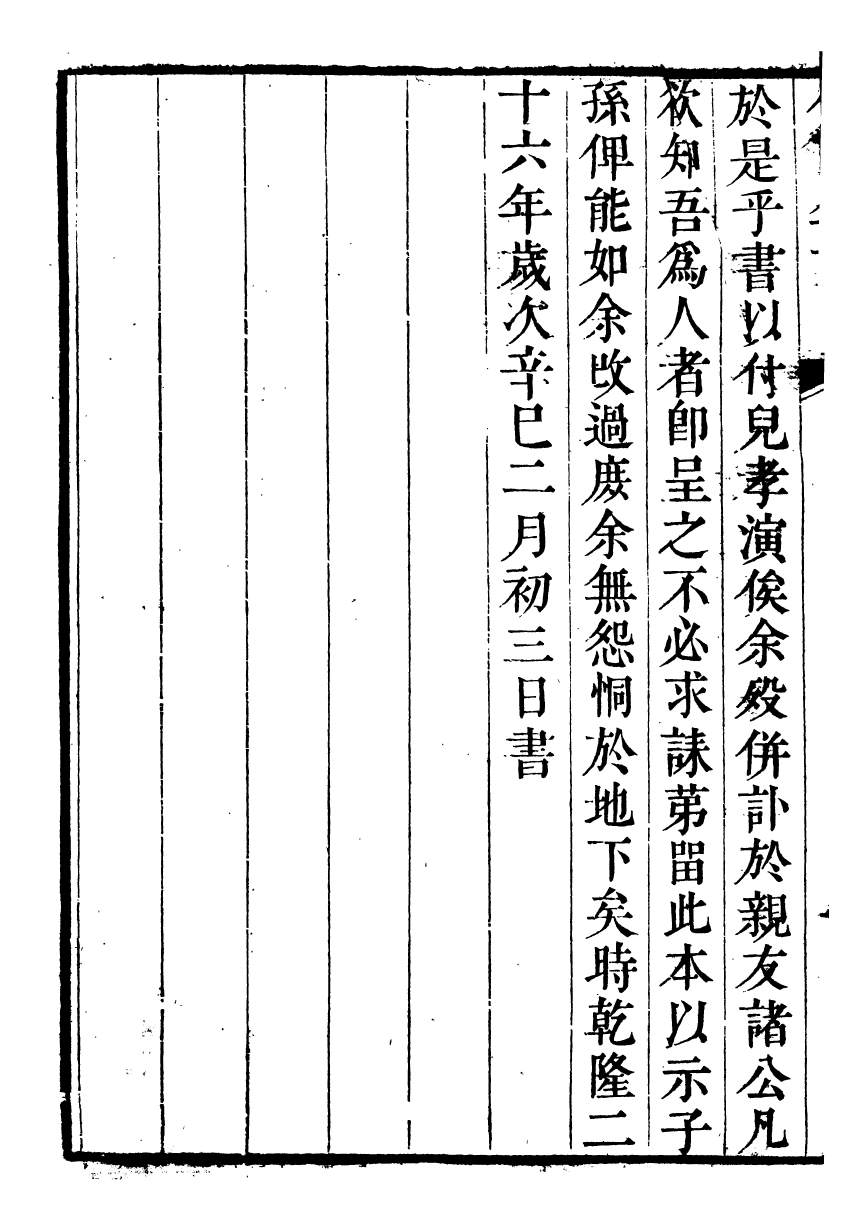 於是乎書以付兒孝演俟余殁併訃於親友諸公凡
欲知吾爲人者卽呈之不必求誄苐畱此本以示子
孫俾能如余改過庻余無怨恫於地下矣時乾隆二
十六年歲次辛巳二月初三日書